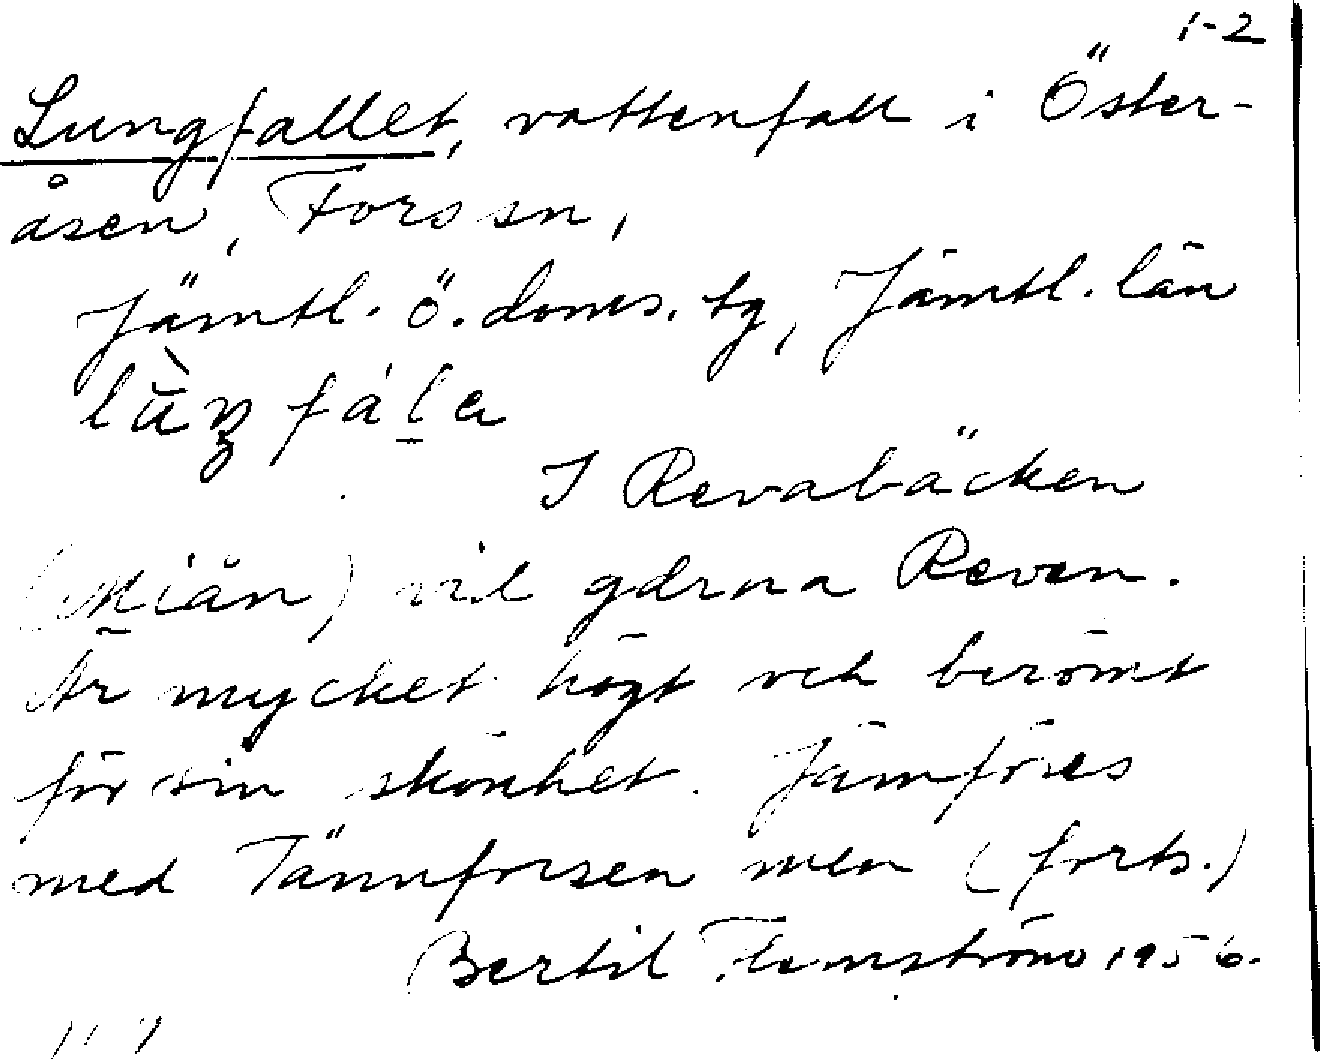 1-2
Lungfallet, vattenfall i Öster-
åsen, Fors sn,
Jämtl. ö. doms. tg, Jämtl. län
I Revabäcken
(Miån) vid gärna Reven.
Är mycket högt och berömt
för sin skönhet. Jämföres
med Tännforsen men (forts.)
Bertil Flemström 1956.